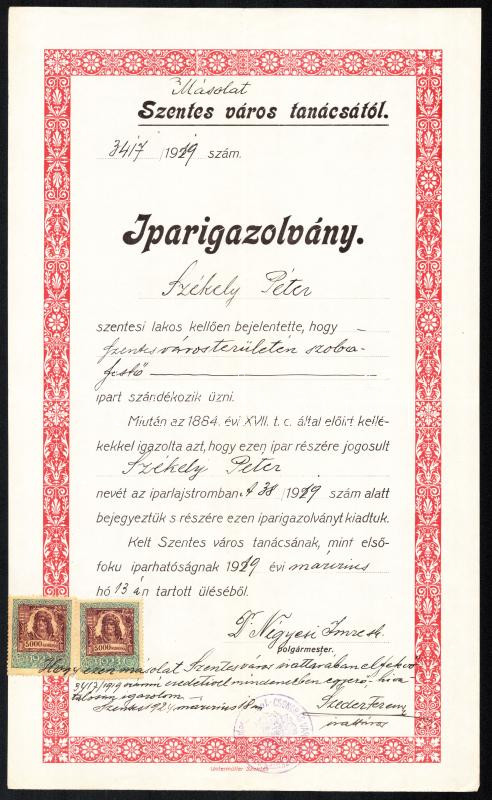 Másolat
Szentes város tanácsától.
3417 1919 szám.
Iparigazolvány.
Székely Péter
szentesi lakos kellően bejelentette, hogy –
Szentes város területén szoba-
festő
ipart szándékozik űzni.
Miután az 1884. évi XVII. t. c. által előirt kellé-
kekkel igazolta azt, hogy ezen ipar részére jogosult
Székely Péter
nevét az iparlajstromban A 38 /1919 szám alatt
bejegyeztük s részére ezen iparigazolványt kiadtuk.
Kelt Szentes város tanácsának, mint első-
foku iparhatóságnak 1919 évi márczius
hó 13 án tartott üléséből.
Dr Négyesi Imre sk
polgármester.
5000 KORONA 5000 KORONA
1923 1923
Hogy ezen másolat Szentes város irattárában elfekvő
3417/1919 számú eredetivel mindenekben egyező – hiva-
talosan igazolom –
Szentes 1924 márczius 18 n
Szeder Ferenc
irattáros
Untermüller Szentes